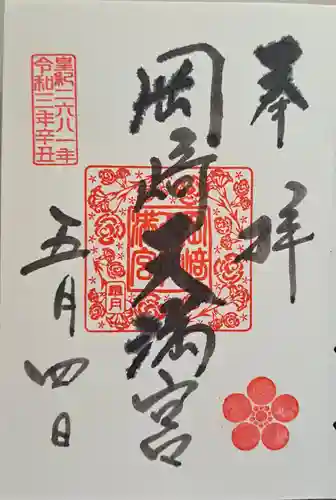 奉拝
岡崎天満宮
岡崎
満宮
皐月
皇紀二六八一年
令和三年辛丑
五月四日